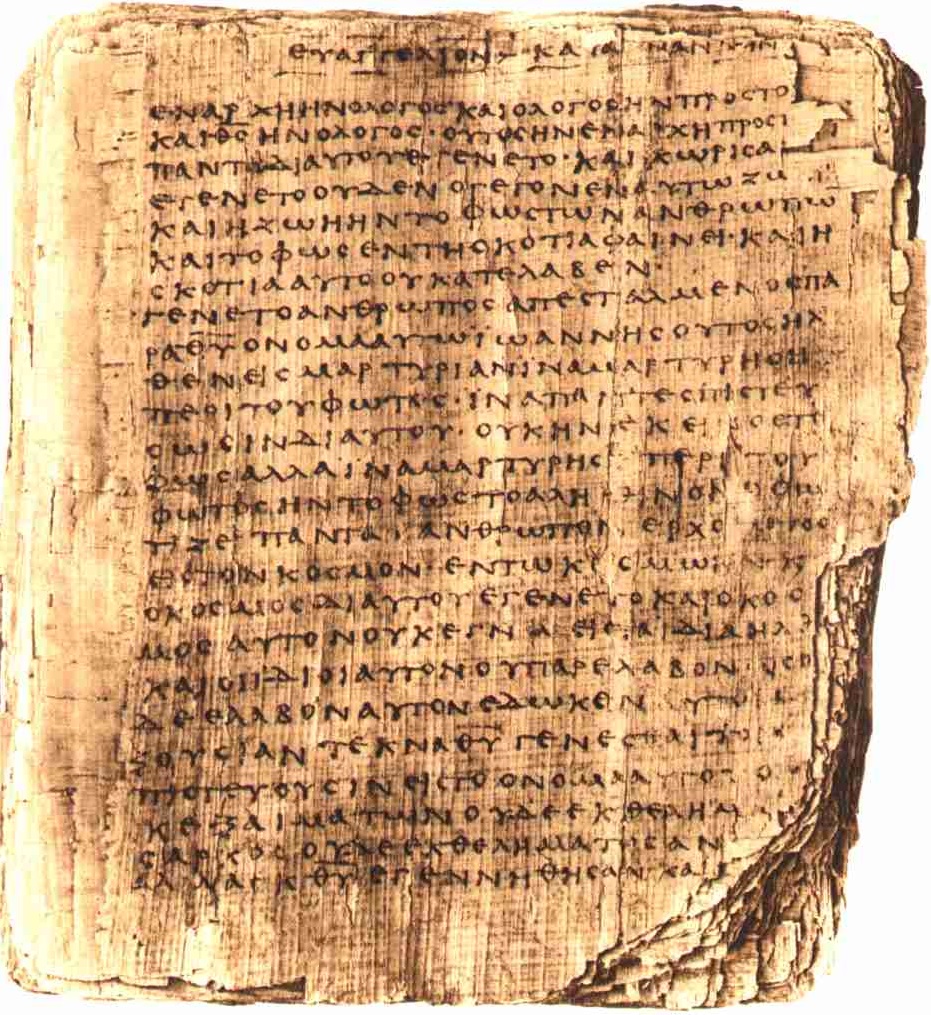 ΕΥΑΓΓΕΛΙΟΝ ΚΑΤΑ
ΕΝΑΡΧΗΗΝΟΛΟΓΟϹΚΑΙΟΛΟΓΟϹΗΝΠΡΟϹΤΟ
ΚΑΙΘϹΗΝΟΛΟΓΟϹ·ΟΥΤΟϹΗΝΕΝΑΡΧΗΠΡΟϹ
ΠΑΝΤΑΔΙΑΥΤΟΥΕΓΕΝΕΤΟ·ΚΑΙΧΩΡΙϹΑ
ΕΓΕΝΕΤΟΟΥΔΕΝΟΓΕΓΟΝΕΝΑΥΤΩΖΩ
ΚΑΙΗΖΩΗΗΝΤΟΦΩϹΤΩΝΑΝΘΡΩΠΩ
ΚΑΙΤΟΦΩϹΕΝΤΗϹΚΟΤΙΑΦΑΙΝΕΙ·ΚΑΙΗ
ϹΚΟΤΙΑΑΥΤΟΟΥΚΑΤΕΛΑΒΕΝ·
ΓΕΝΕΤΟΑΝΘΡΩΠΟϹΑΠΕϹΤΑΛΜΕΝΟϹΠΑ
ΡΑΘΥΟΝΟΜΑΑΥΤΩΙΩΑΝΝΗϹΟΥΤΟϹΗΛ
ΘΕΝΕΙϹΜΑΡΤΥΡΙΑΝΙΝΑΜΑΡΤΥΡΗϹΗ
ΠΕΡΙΤΟΥΦΩΤΟϹ·ΙΝΑΠΑΝΤΕϹΠΙϹΤΕΥ
ϹΩϹΙΝΔΙΑΥΤΟΥ·ΟΥΚΗΝΕΚΕΙΝΟϹΤΟ
ΦΩϹΑΛΛΑΙΝΑΜΑΡΤΥΡΗϹΗ ΠΕΡΙΤΟΥ
ΦΩΤΟϹΗΝΤΟΦΩϹΤΟΑΛΗΘΙΝΟΝΟΦΩ
ΤΙΖΕΙΠΑΝΤΑΑΝΘΡΩΠΟΝΕΡΧΟΜΕΝΟ
ΕΙϹΤΟΝΚΟϹΜΟΝ·ΕΝΤΩΚΟϹΜΩΗΝΚ
ΟΚΟϹΜΟϹΔΙΑΥΤΟΥΕΓΕΝΕΤΟΚΑΙΟΚΟϹ
ΜΟϹΑΥΤΟΝΟΥΚΕΓΝΩΕΙϹΤΑΙΔΙΑΗΛ
ΚΑΙΟΙΙΔΙΟΙΑΥΤΟΝΟΥΠΑΡΕΛΑΒΟΝ·ΟϹΟ
ΔΕΕΛΑΒΟΝΑΥΤΟΝΕΔΩΚΕΝΑΥΤΟΙ
ΞΟΥϹΙΑΝΤΕΚΝΑΘΥΓΕΝΕϹΘΑΙΤΟΙϹ
ΠΙϹΤΕΥΟΥϹΙΝΕΙϹΤΟΟΝΟΜΑΑΥΤΟΥΟ
ΚΕΞΑΙΜΑΤΩΝΟΥΔΕΕΚΘΕΛΗΜ
ϹΑΡΚΟϹΟΥΔΕΕΚΘΕΛΗΜΑΤΟϹΑΝ
ΑΛΛΑΕΚΘΥΕΓΕΝΝΗΘΗϹΑΝ·ΚΑΙ